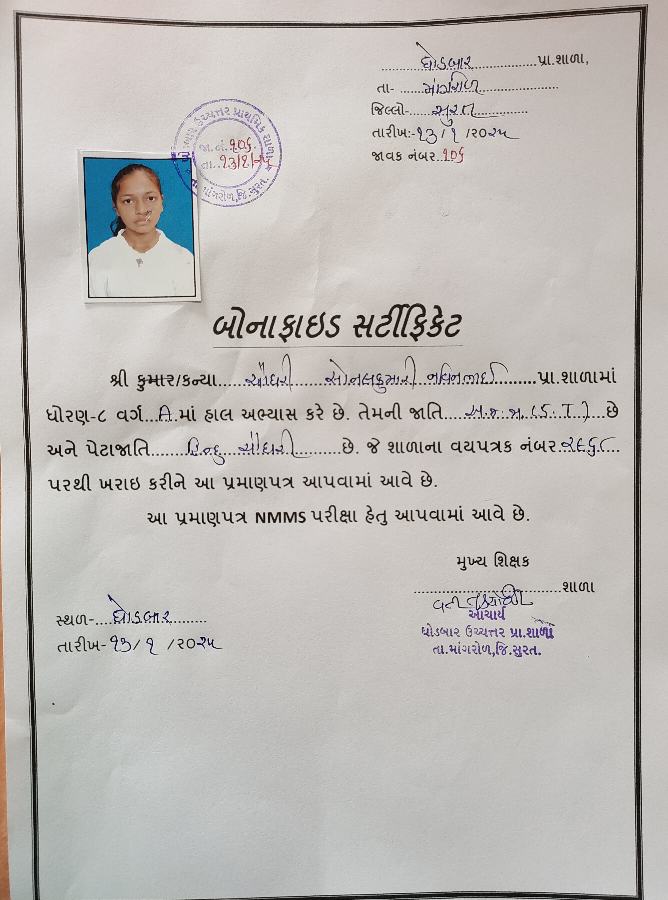 ઘોડબાર પ્રા.શાળા,
તા- માંગરોળ
જિલ્લો- સુરત
તારીખ:-૧૩/૧ /૨૦૨૫
જાવક નંબર.૧૦૬
ઘોડબાર ઉચ્ચત્તર પ્રાથમિક શાળા
જા.નં.૧૦૬
તા. ૧૩/૧/૨૫
તા. માંગરોળ,જિ.સુરત.
બોનાફાઇડ સર્ટીફિકેટ
શ્રી કુમાર/કન્યા.....ચૌધરી સોનલકુમારી નવિનભાઈ.......પ્રા.શાળામાં
ધોરણ-૮ વર્ગ..A.માં હાલ અભ્યાસ કરે છે. તેમની જાતિ ...અ.જ.જા(S.T)...છે
અને પેટાજાતિ......હિન્દુ ચૌધરી.......છે. જે શાળાના વયપત્રક નંબર.૨૯૬૮...
પરથી ખરાઇ કરીને આ પ્રમાણપત્ર આપવામાં આવે છે.
આ પ્રમાણપત્ર NMMS પરીક્ષા હેતુ આપવામાં આવે છે.
મુખ્ય શિક્ષક
............................શાળા
આચાર્ય
ઘોડબાર ઉચ્ચત્તર પ્રા.શાળા
તા.માંગરોળ,જિ.સુરત.
સ્થળ-...ઘોડબાર.......
તારીખ- ૧૩/ ૧ /૨૦૨૫